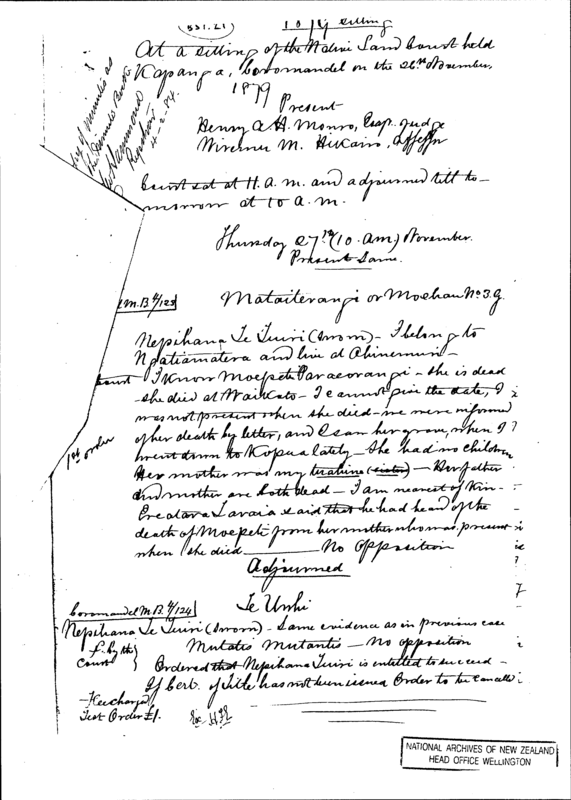 (531.21)
10/4 sitting
At a sitting of the Native Land Court held
Kapanga, Coromandel on the 26th November,
1879
Present
Henry A. H. Monro, Esqr. Judge
M. Hikairo, Assessor
Court sat at 11. A. M. and adjourned till to-
morrow at 10 A. M.
Thursday 27th (10. am) November.
Present Same.
of minutes as
Hammond
Registrar
4-2-94.
M.B. 4/123
Mataiterangi or Moehau No 3.G.
Nepihana Te Tuiri (sworn) - I belong to
Ngatiamatera and live at Ohinemuri -
Court
I know Moepeti Paraeorangi - She is dead
- she died at Waikato - I cannot give the date, I
was not present when she died - we were informed
of her death by letter, and I saw her grave, when I
1st order
went down to Kopua lately - She had no children
Her mother was my (sister) - Her father
and mother are both dead - I am nearest of Kin -
said that he had heard of the
death of Moepeti from her mother who was present
when she died No opposition
Adjourned
Coromandel M.B. 4/124
Te Unhi
Nepihana Te Tuiri (sworn) - Same evidence as in previous case
by the
Court
Mutatis Mutantis - No opposition
Ordered that Nepihana Tuiri is entitled to succeed -
If Cert. of Title has not been issued Order to be
Fee charged
Test Order £1.
NATIONAL ARCHIVES OF NEW ZEALAND
HEAD OFFICE WELLINGTON